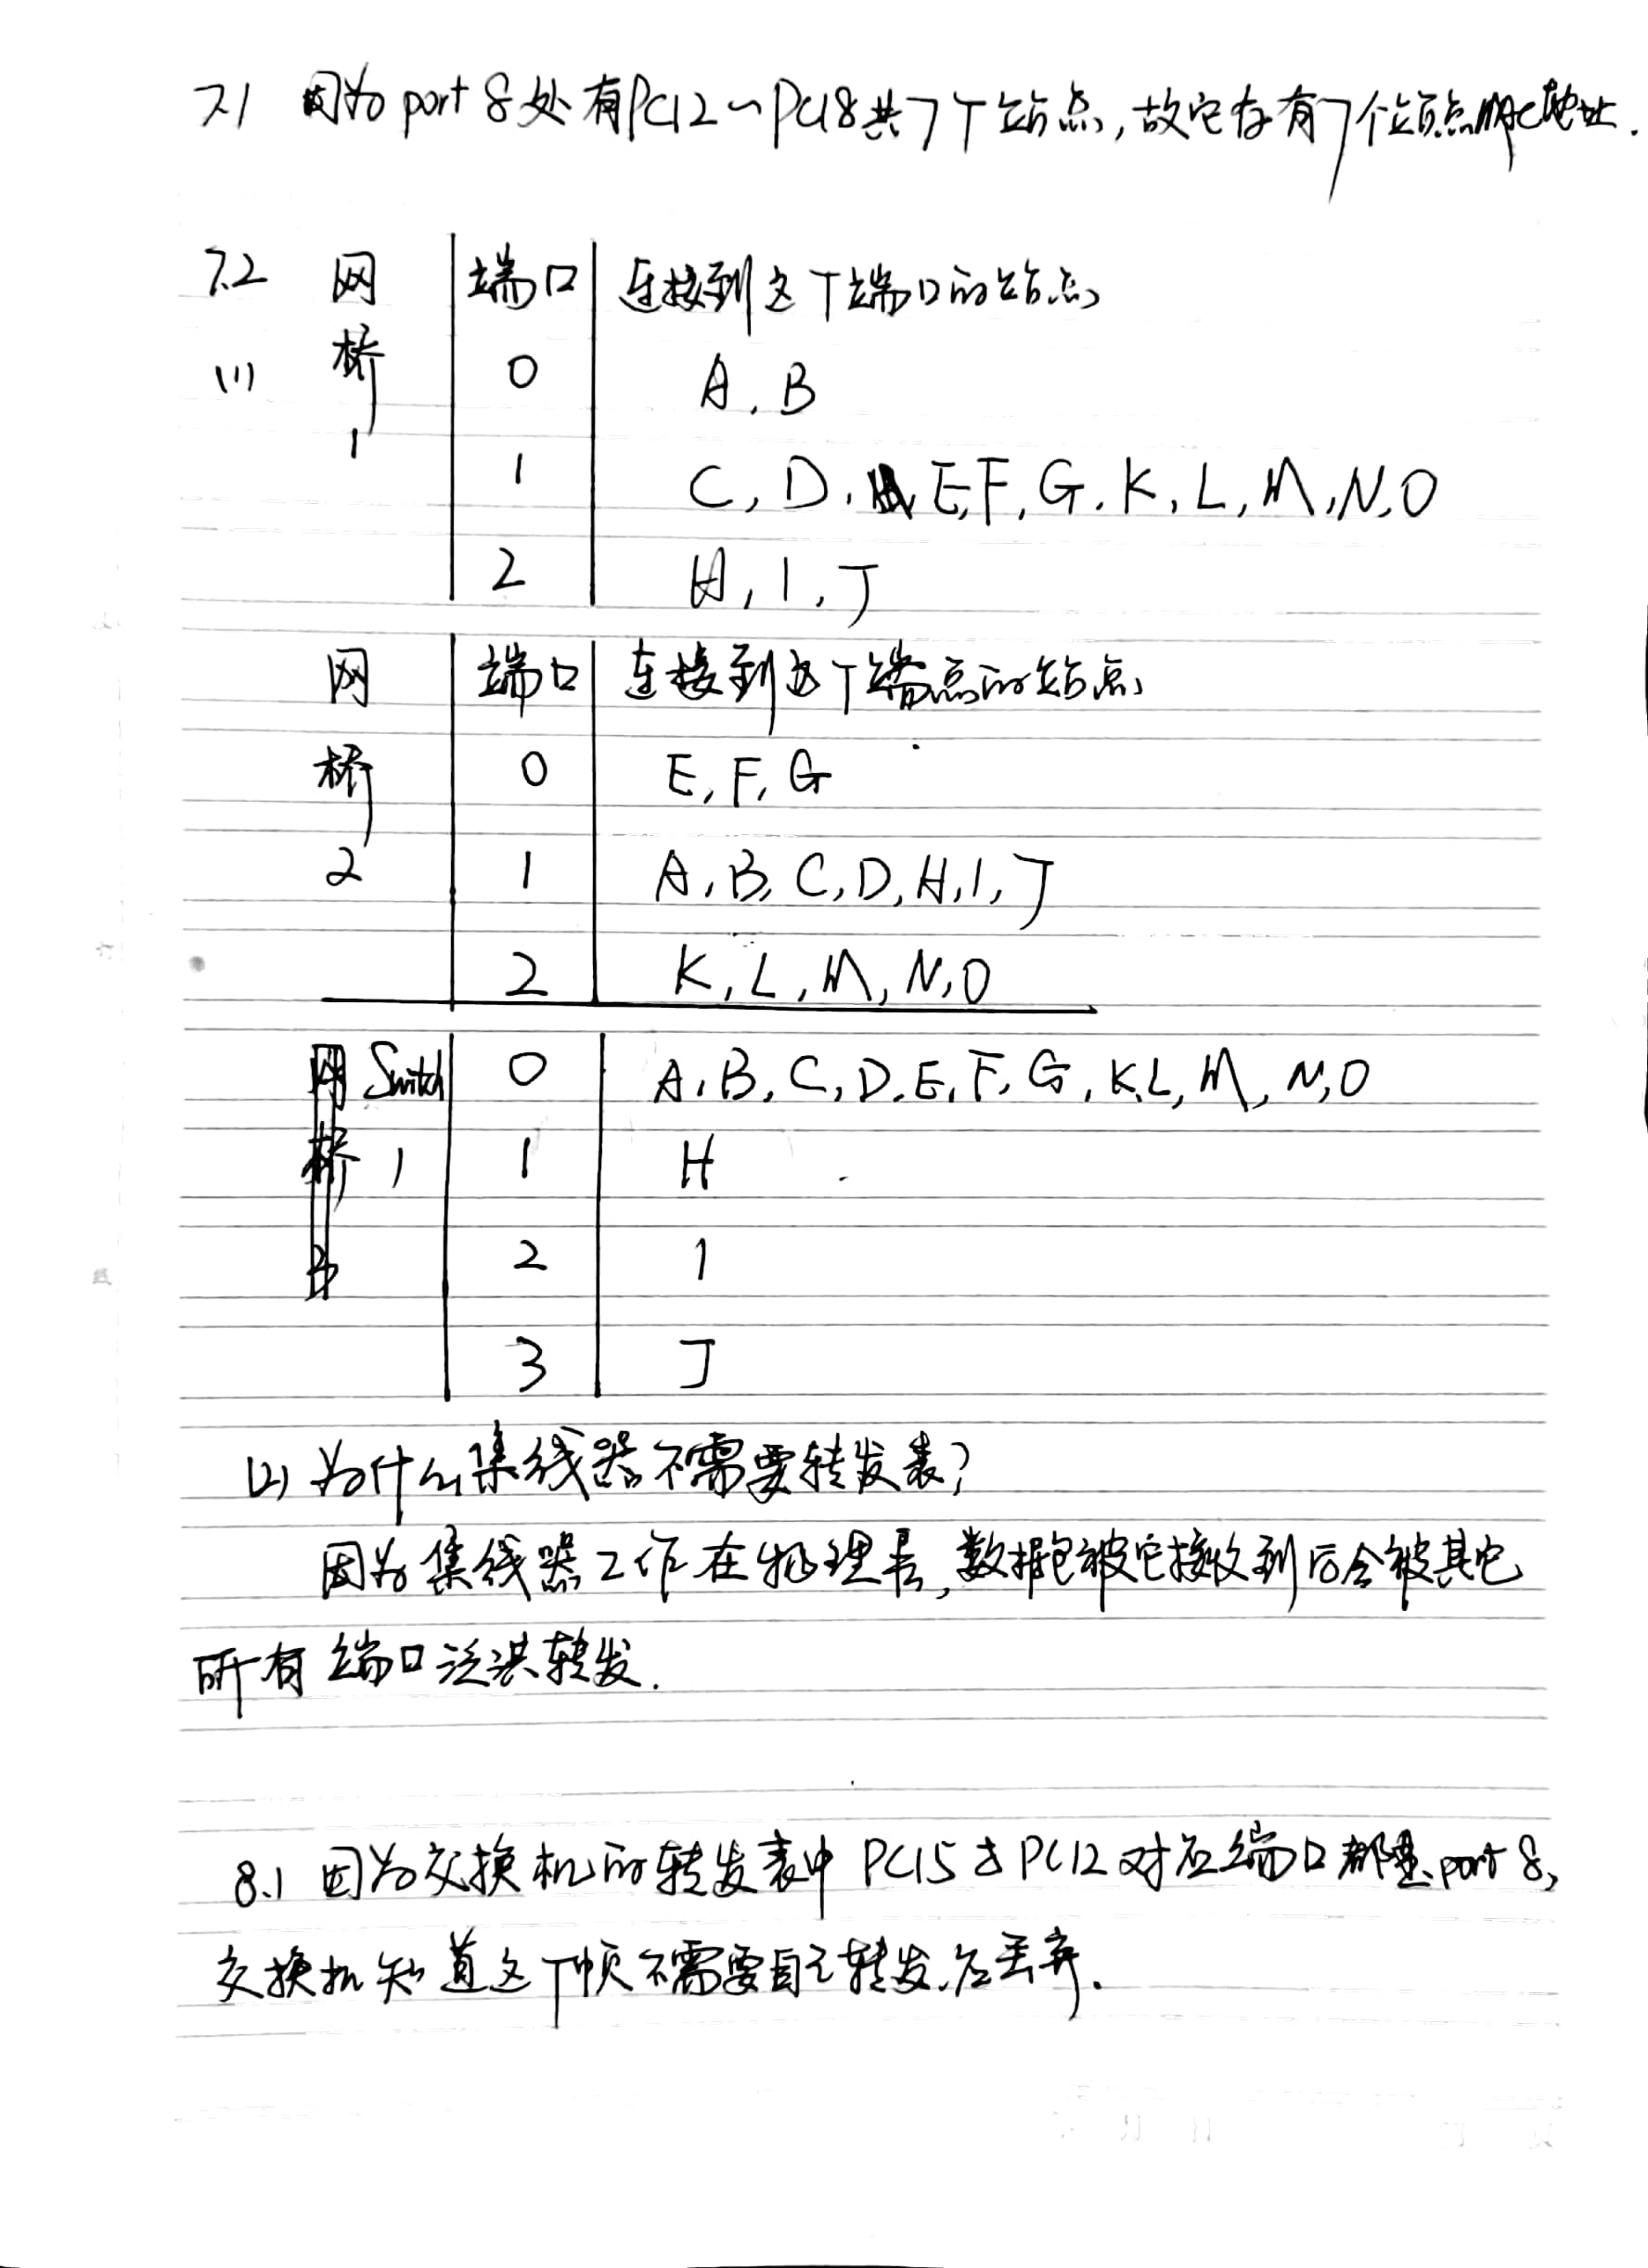 7.1 因为port 8处有PC12~PC18共7个站点,故它存有7个站点MAC地址.
7.2 网 端口 连接到这个端口的站点
(1) 桥 0 A,B
1 1 C,D,E,F,G,K,L,M,N,O
2 H,I,J
网 端口 连接到这个端点的站点
桥 0 E,F,G
2 1 A,B,C,D,H,I,J
2 K,L,M,N,O
Switch 0 A,B,C,D,E,F,G,K,L,M,N,O
1 1 H
2 I
3 J
(2) 为什么集线器不需要转发表?
因为集线器工作在物理层,数据包被它接收到后会被其它
所有端口泛洪转发.
8.1 因为交换机的转发表中PC15与PC12对应端口都是port 8,
交换机知道这个帧不需要自己转发,应丢弃.